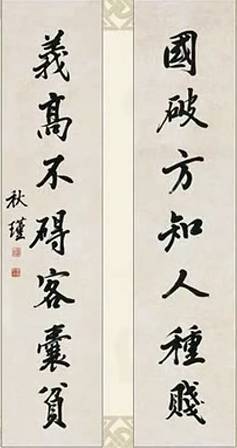 國破方知人種賤
義高不碍客囊貧
秋瑾